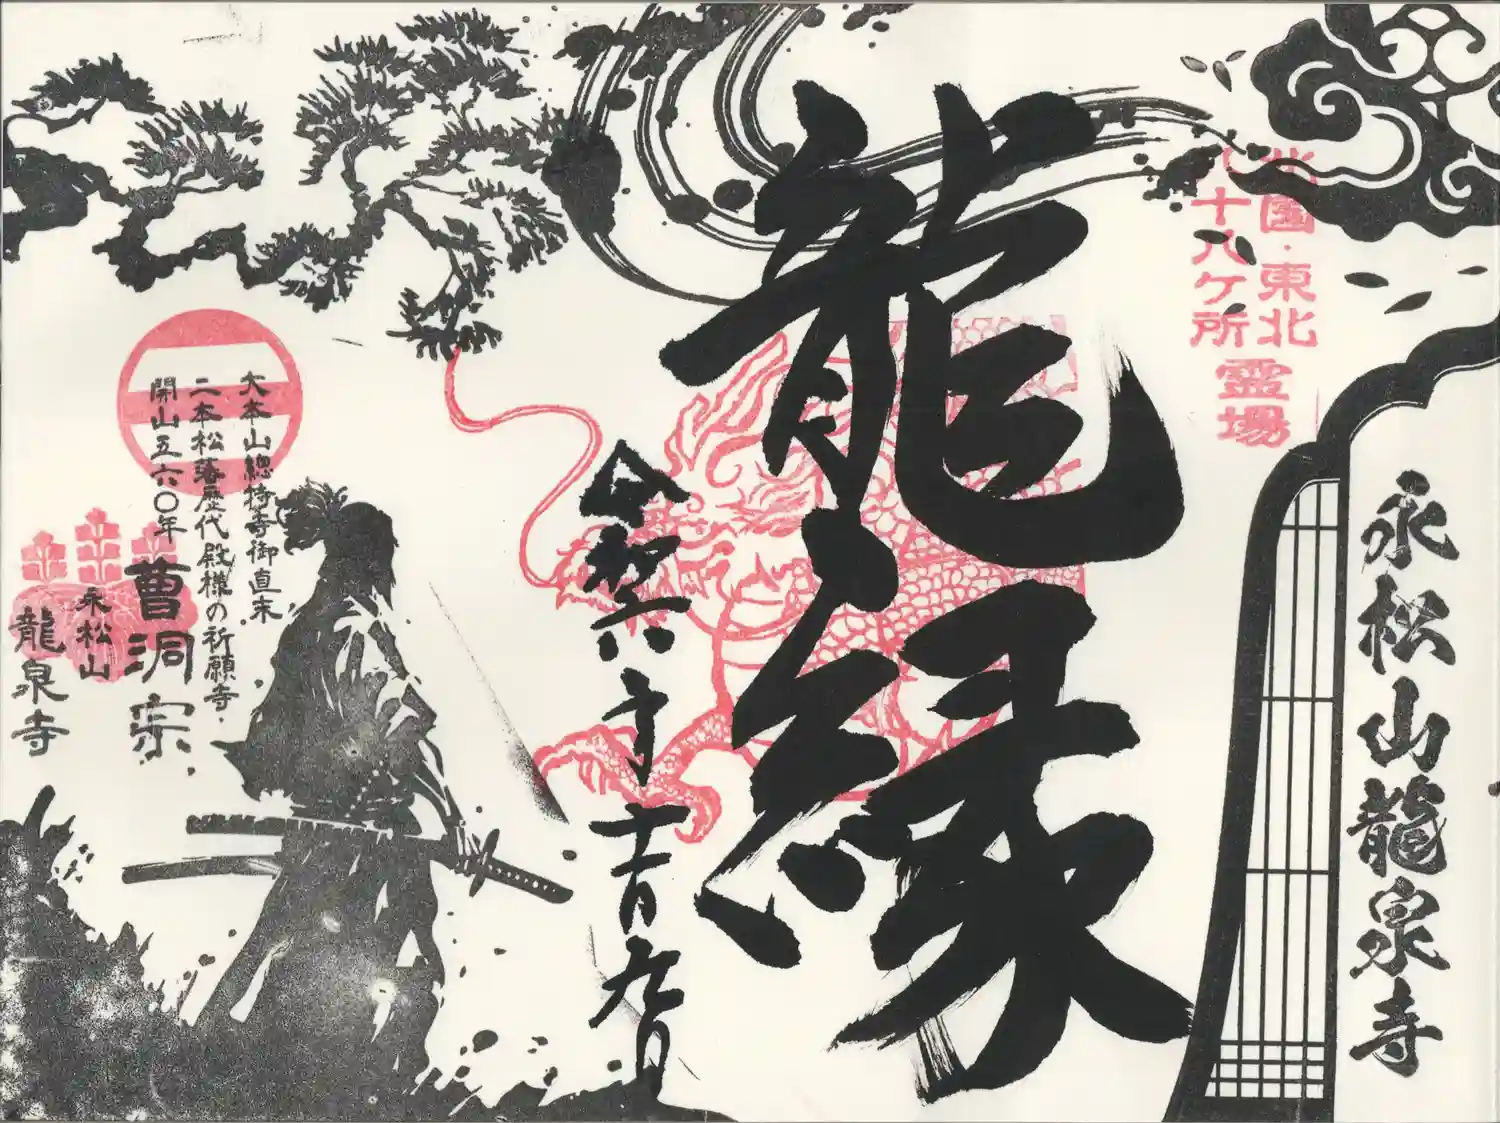 永松山龍泉寺
・東北
八十八ケ所
霊場
龍縁
令和六年十一月九日
大本山總持寺御直末
二本松藩歴代殿様の祈願寺・
開山五六〇年
曹洞宗
永松山
龍泉寺